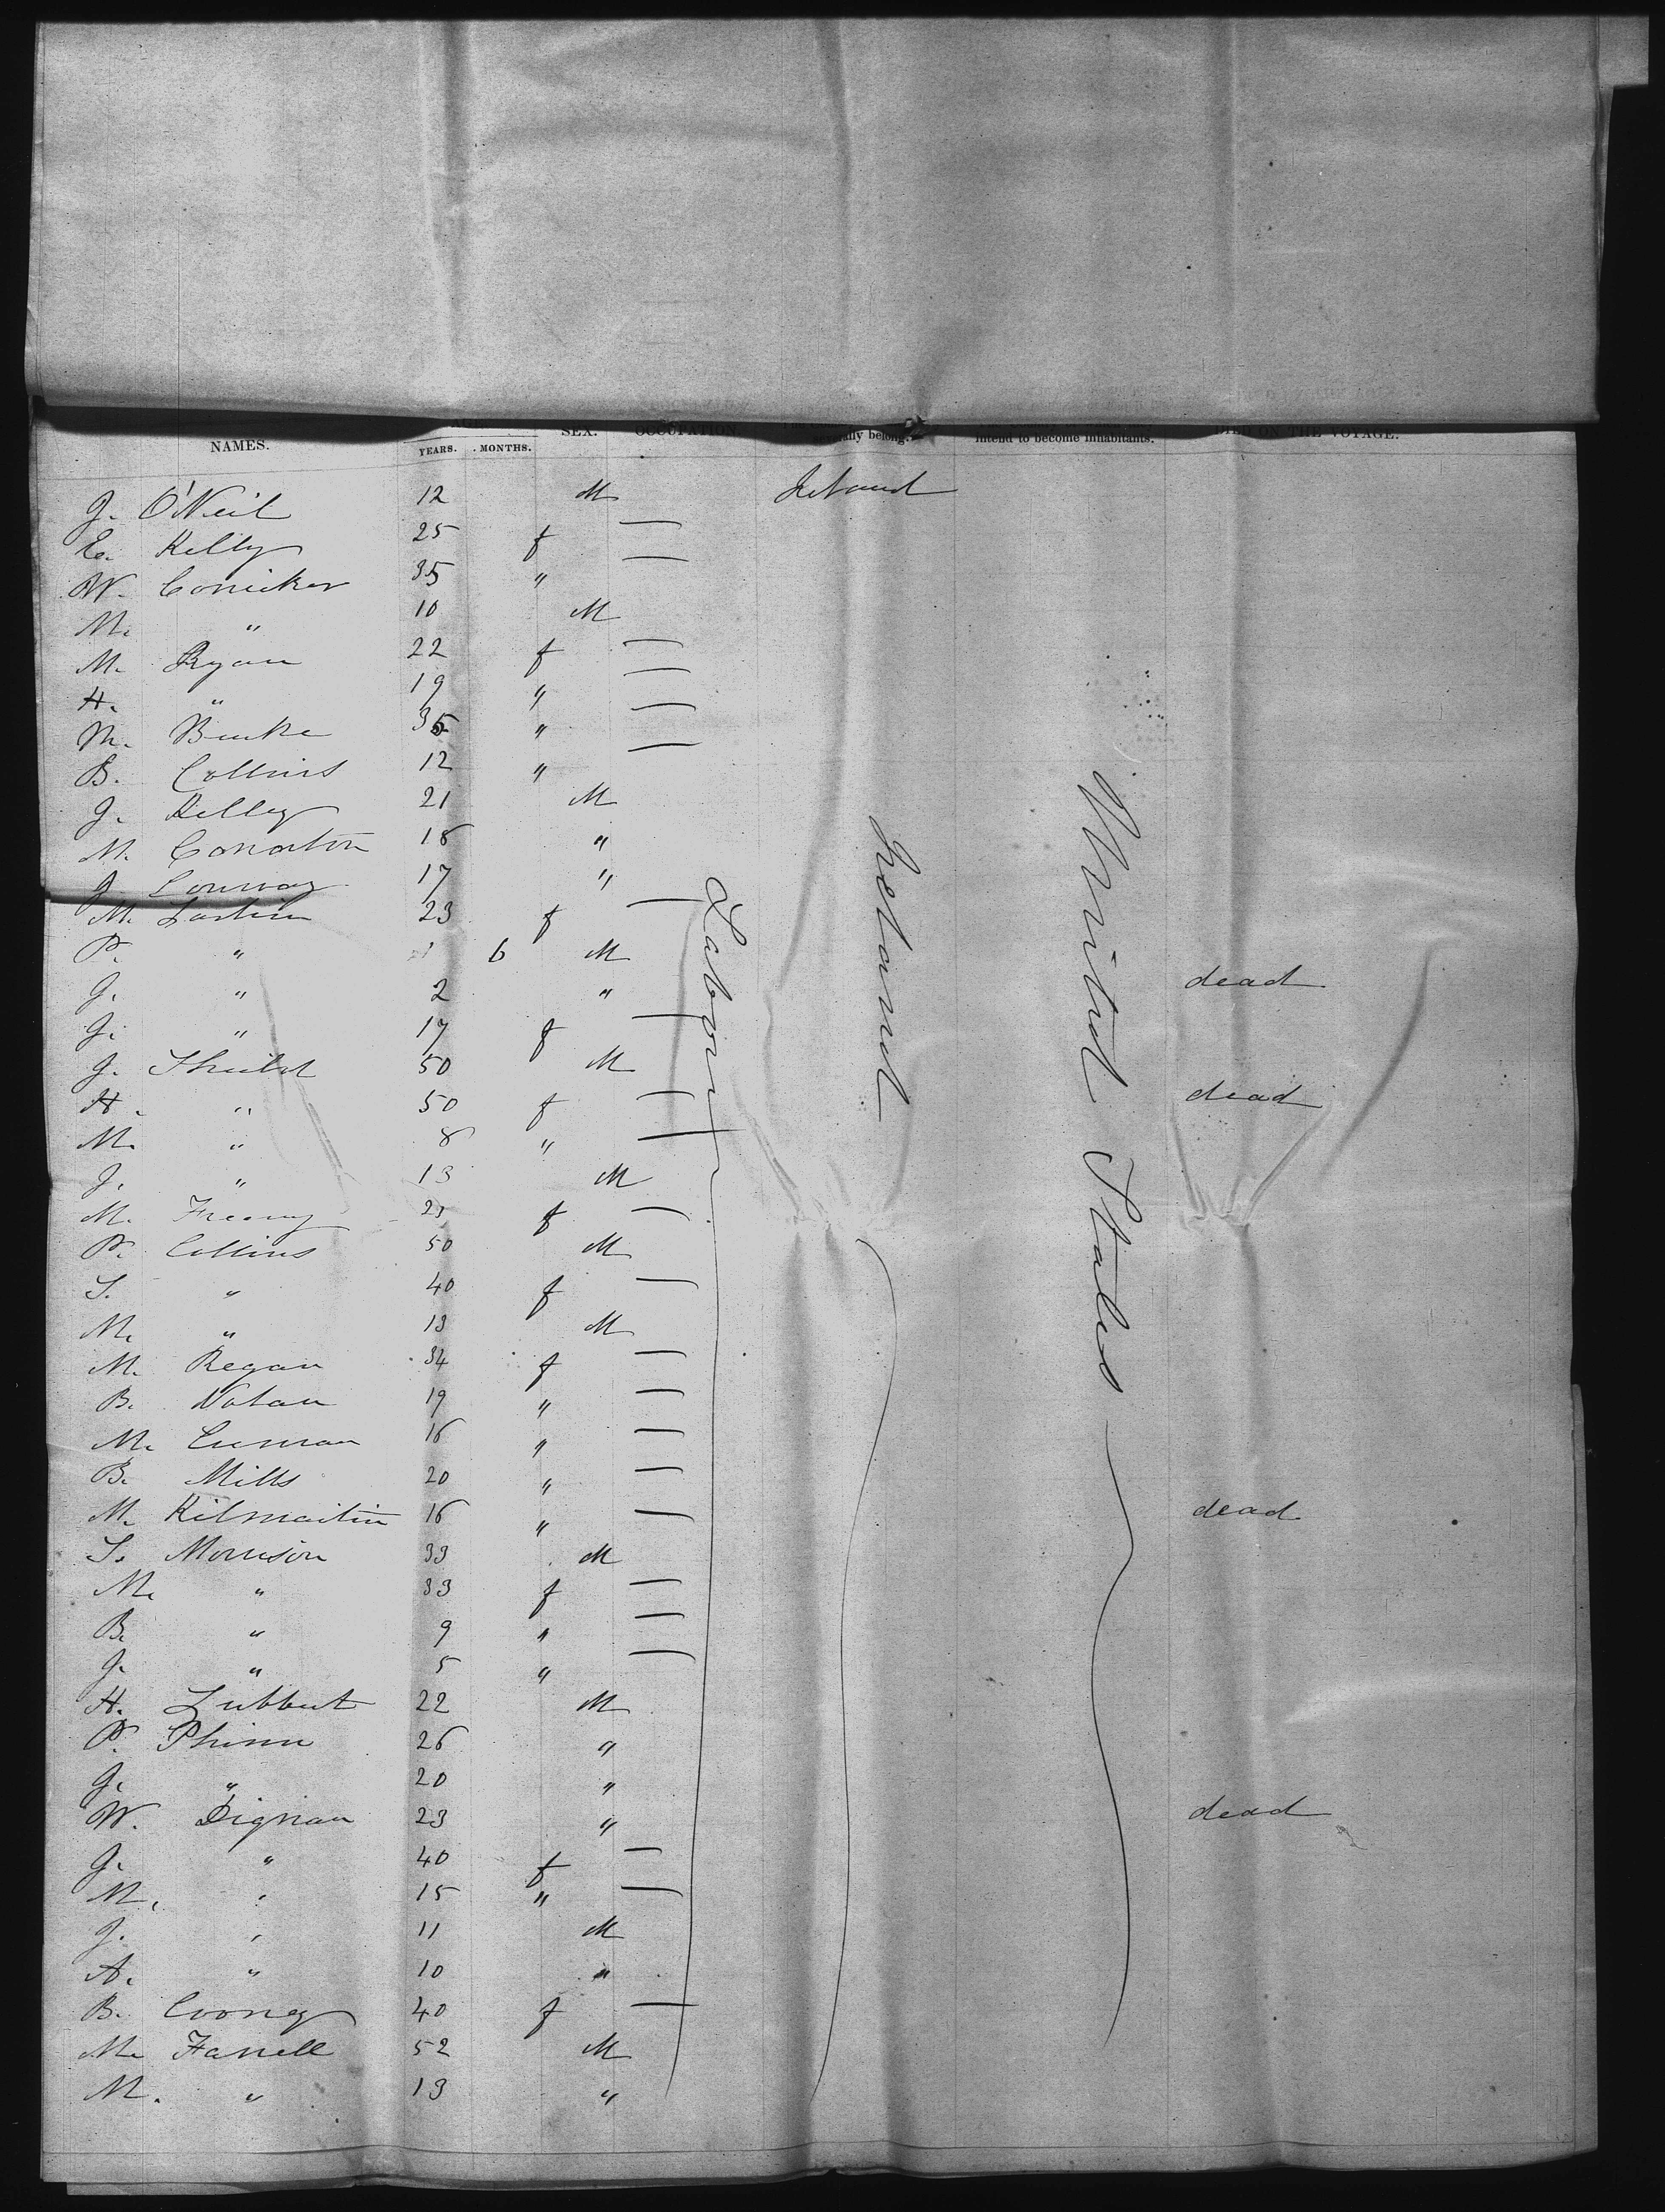 AGE. SEX. OCCUPATION.
NAMES. YEARS. MONTHS. ally belong. intend to become inhabitants. DIED ON THE VOYAGE.
J. O'Neil 12 M Ireland
E. Kelly 25 f —
W. Conicker 35 " —
M. " 10 M
M. Ryan 22 f —
H. " 19 " —
M. Burke 35 " —
B. Collins 12 " —
J. Kelley 21 M
M. Conorton 18 "
J. Conway 17 "
M. Larkin 23 f —
P. " 1 6 M
J. " 2 " dead
J. " 17 f —
J. Shield 50 M
H. " 50 f — dead
M. " 8 " —
J. " 13 M
M. Freeny 23 f —
P. Collins 50 M
S. " 40 f —
M. " 13 M
M. Regan 34 f —
B. Nolan 19 " —
M. Curran 16 " —
B. Mills 20 " —
M. Kilmartin 16 " — dead
S. Morrison 33 M
M. " 33 f —
B. " 9 " —
J. " 5 " —
H. Lubbut 22 M
P. Phinn 26 "
J. " 20 "
W. Dignan 23 " dead
J. " 40 f —
M. " 15 " —
J. " 11 M
A. " 10 "
B. Coony 40 f —
M. Farrell 52 M
M. " 13 "
Labour
Ireland
United States